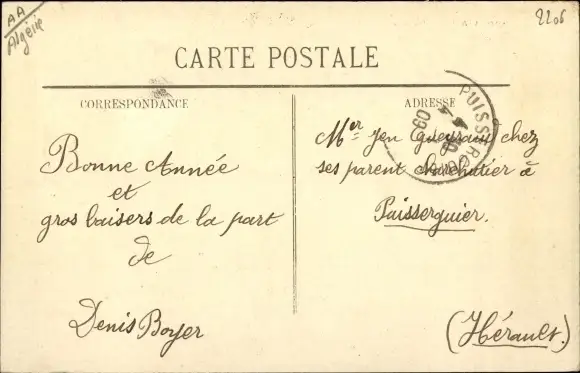 AA
Algérie
2206
CARTE POSTALE
CORRESPONDANCE
ADRESSE
PUISSERGUIER
09
Bonne Année
et
gros baisers de la part
de
Denis Boyer
Mer Jen Gueyraud chez
ses parent charcutier à
Puisserguier.
(Hérault.)